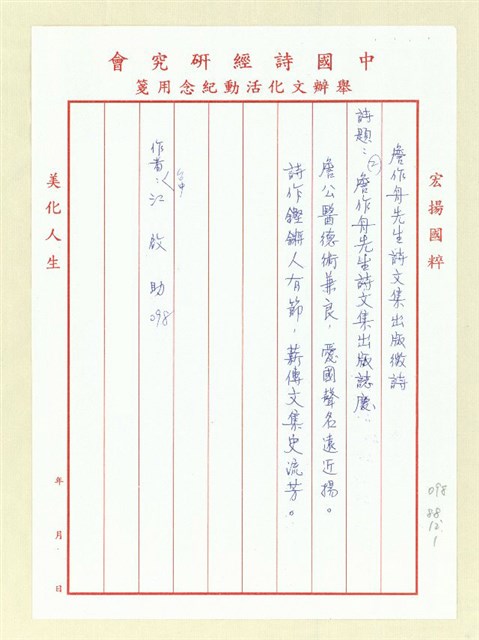 中國詩經研究會
舉辦文化活動紀念用箋
宏揚國粹
詹作舟先生詩文集出版徵詩
詩題：(2)詹作舟先生詩文集出版誌慶
詹公醫德術兼良，憂國聲名遠近揚。
詩作鏗鏘人有節，薪傳文集史流芳。
作者：〈台中〉江啟助 098
美化人生
年 月 日
098
88
12
1